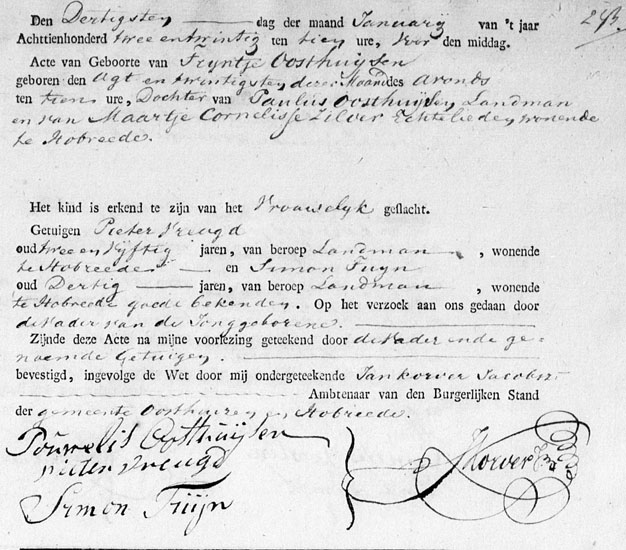 Den Dertigsten dag der maand Januarij van 't jaar
Achttienhonderd twee en twintig ten tien ure, voor den middag.
Acte van Geboorte van Trijntje Oosthuijsen
geboren den Agt en twintigsten dezer Maand des Avonds
ten tien ure, Dochter van Paulus Oosthuijsen, Landman
en van Maartje Cornelisse Zilver Echtelieden, wonende
te Hobreede.
Het kind is erkend te zijn van het Vrouwelyk geslacht.
Getuigen Pieter Vreugd
oud twee en Vijftig jaren, van beroep Landman, wonende
te Hobreede en Simon Tuijn
oud Dertig jaren, van beroep Landman, wonende
te Hobreede goede bekenden. Op het verzoek aan ons gedaan door
de Vader van de Jonggeborene.
Zijnde deze Acte na mijne voorlezing geteekend door de Vader en de ge-
noemde Getuigen.
bevestigd, ingevolge de Wet door mij ondergeteekende Jan Korver Jacobsz
Ambtenaar van den Burgerlijken Stand
der gemeente Oosthuizen en Hobreede.
Pouwelis Oosthuijsen
pieter vreugd
JKorver
Simon Tuijn